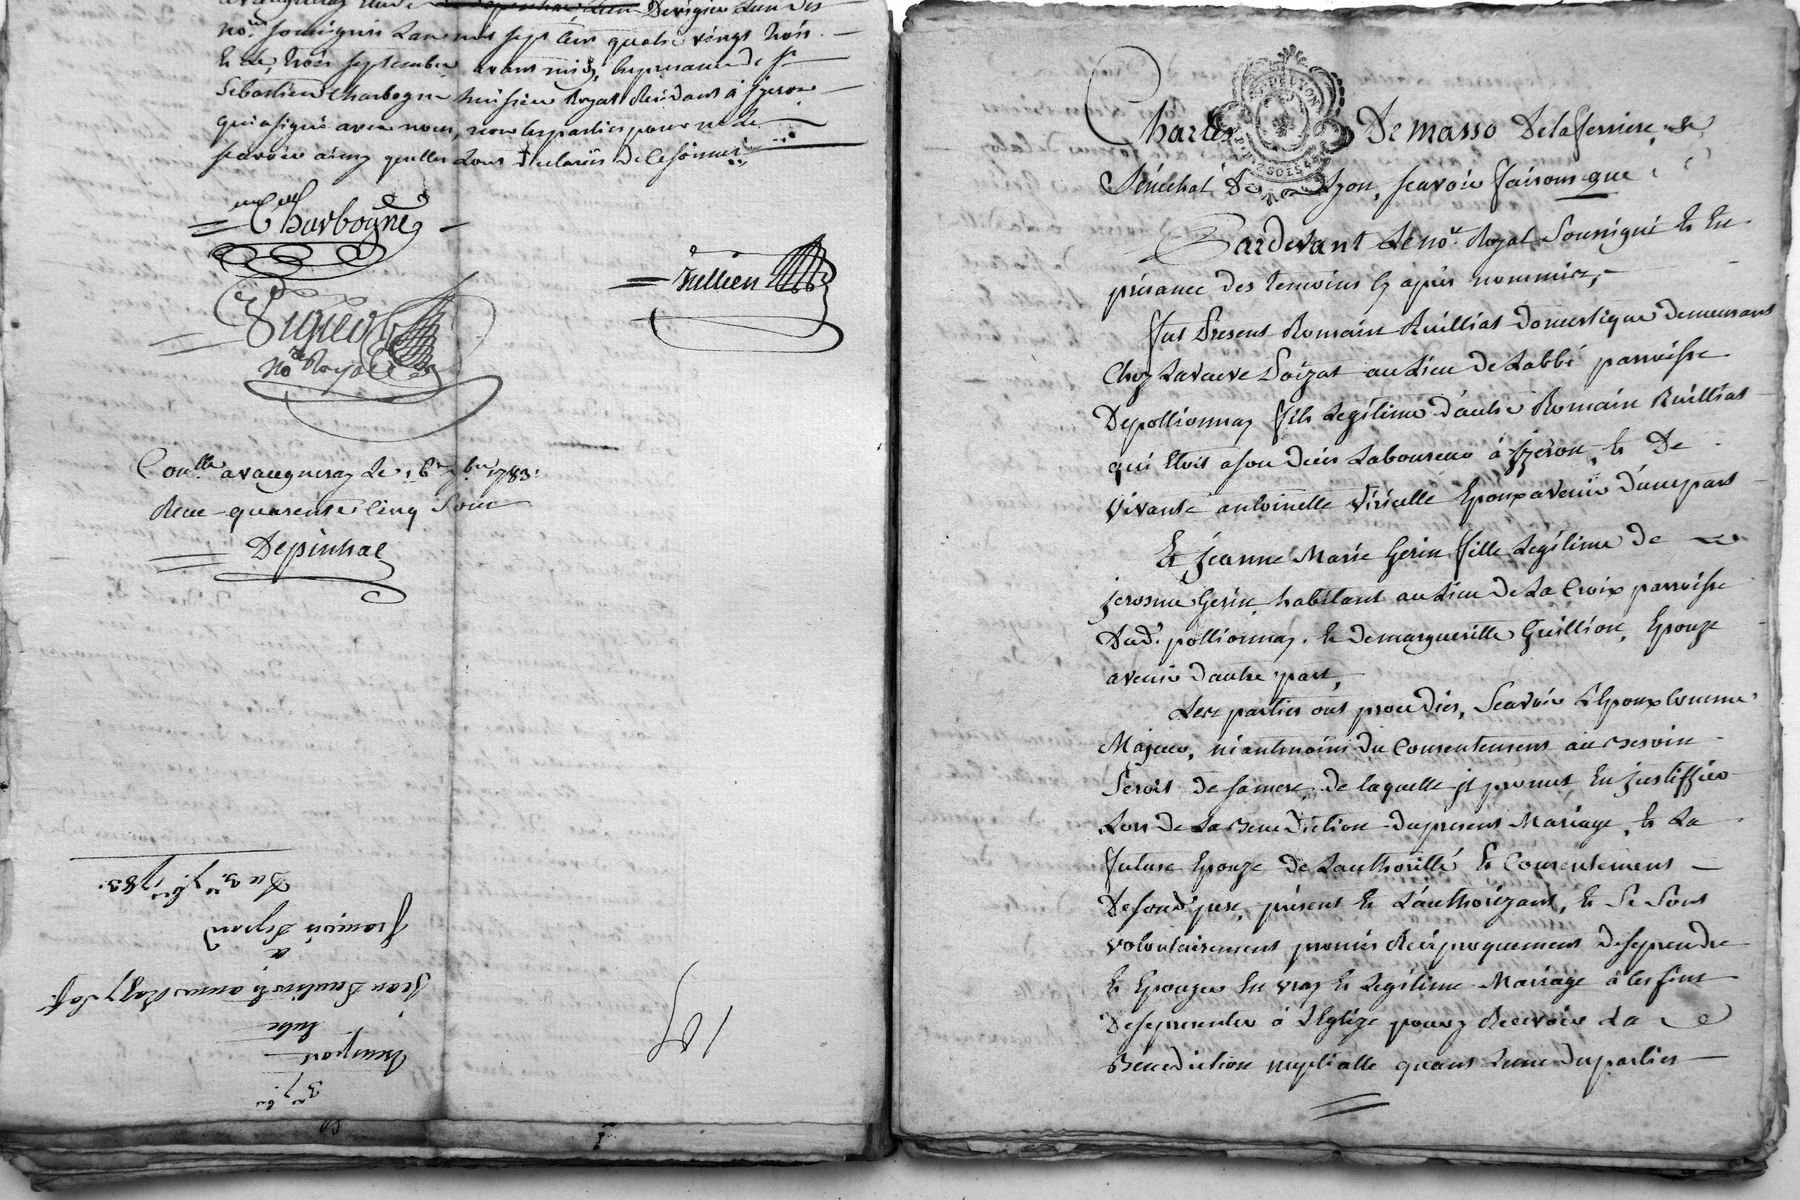 nore. soussignés Lan mil sept cent quatre vingt trois
Et le trois septembre avant midi, En presance de Sr
Sebastien Charbogne huissier Royal Residant à Izeron
qui a signé avec nous, non les parties pour ne le
scavoir ainsy quelles Lont declaré de ce sommés
Charbogne
Jullien
Viguer
no.re Royal
Conlle. a vaugneray Le 16 7bre 1783.
Reçu quarente cinq Sous
Depinhac
197
3e. 7bre
Transport
Entre
Jean
à
françois
Du 3e. 7bre 1783.
Charles Demasso Delaferriere, &c
GEN. DE LYON
Sénechal De Lyon, scavoir faisons que
Pardevant Le nore. Royal Soussigné Et En
présance des temoins Cy après nommés,
fut Present Romain Ruilliat domestique demeurant
Chez La veuve Loizat au Lieu De Labbé parroisse
De pollionnay fils Legitime d'autre Romain Ruilliat
qui Etoit a son deces Laboureur à Izeron, Et De
vivante antoinette viricelle Epoux avenir d'une part
Et jeanne Marie Gerin fille Legitime de
jerosme Gerin habitant au Lieu De La Croix parroisse
Dud. pollionnay. Et de margueritte Guillion, Epouze
avenir d'autre part,
Les parties ont procedées, Scavoir L'Epoux comme
Majeur, néantmoins du Consentement au Besoin
Seroit de sa mere, de laquelle il promet En justiffier
Lors De La Benediction du present Mariage, Et La
future Epouze De Lauthorité Et Consentement
De sond. pere, présent Et L'authorizant, Et Se Sont
volontairement promis Reciproquement de se prendre
Et Epouzer En vray Et Legitime Mariage à Ces fins
De se presenter à L'Eglize pour y Recevoir La
Benediction nuptialle quant L'une des parties